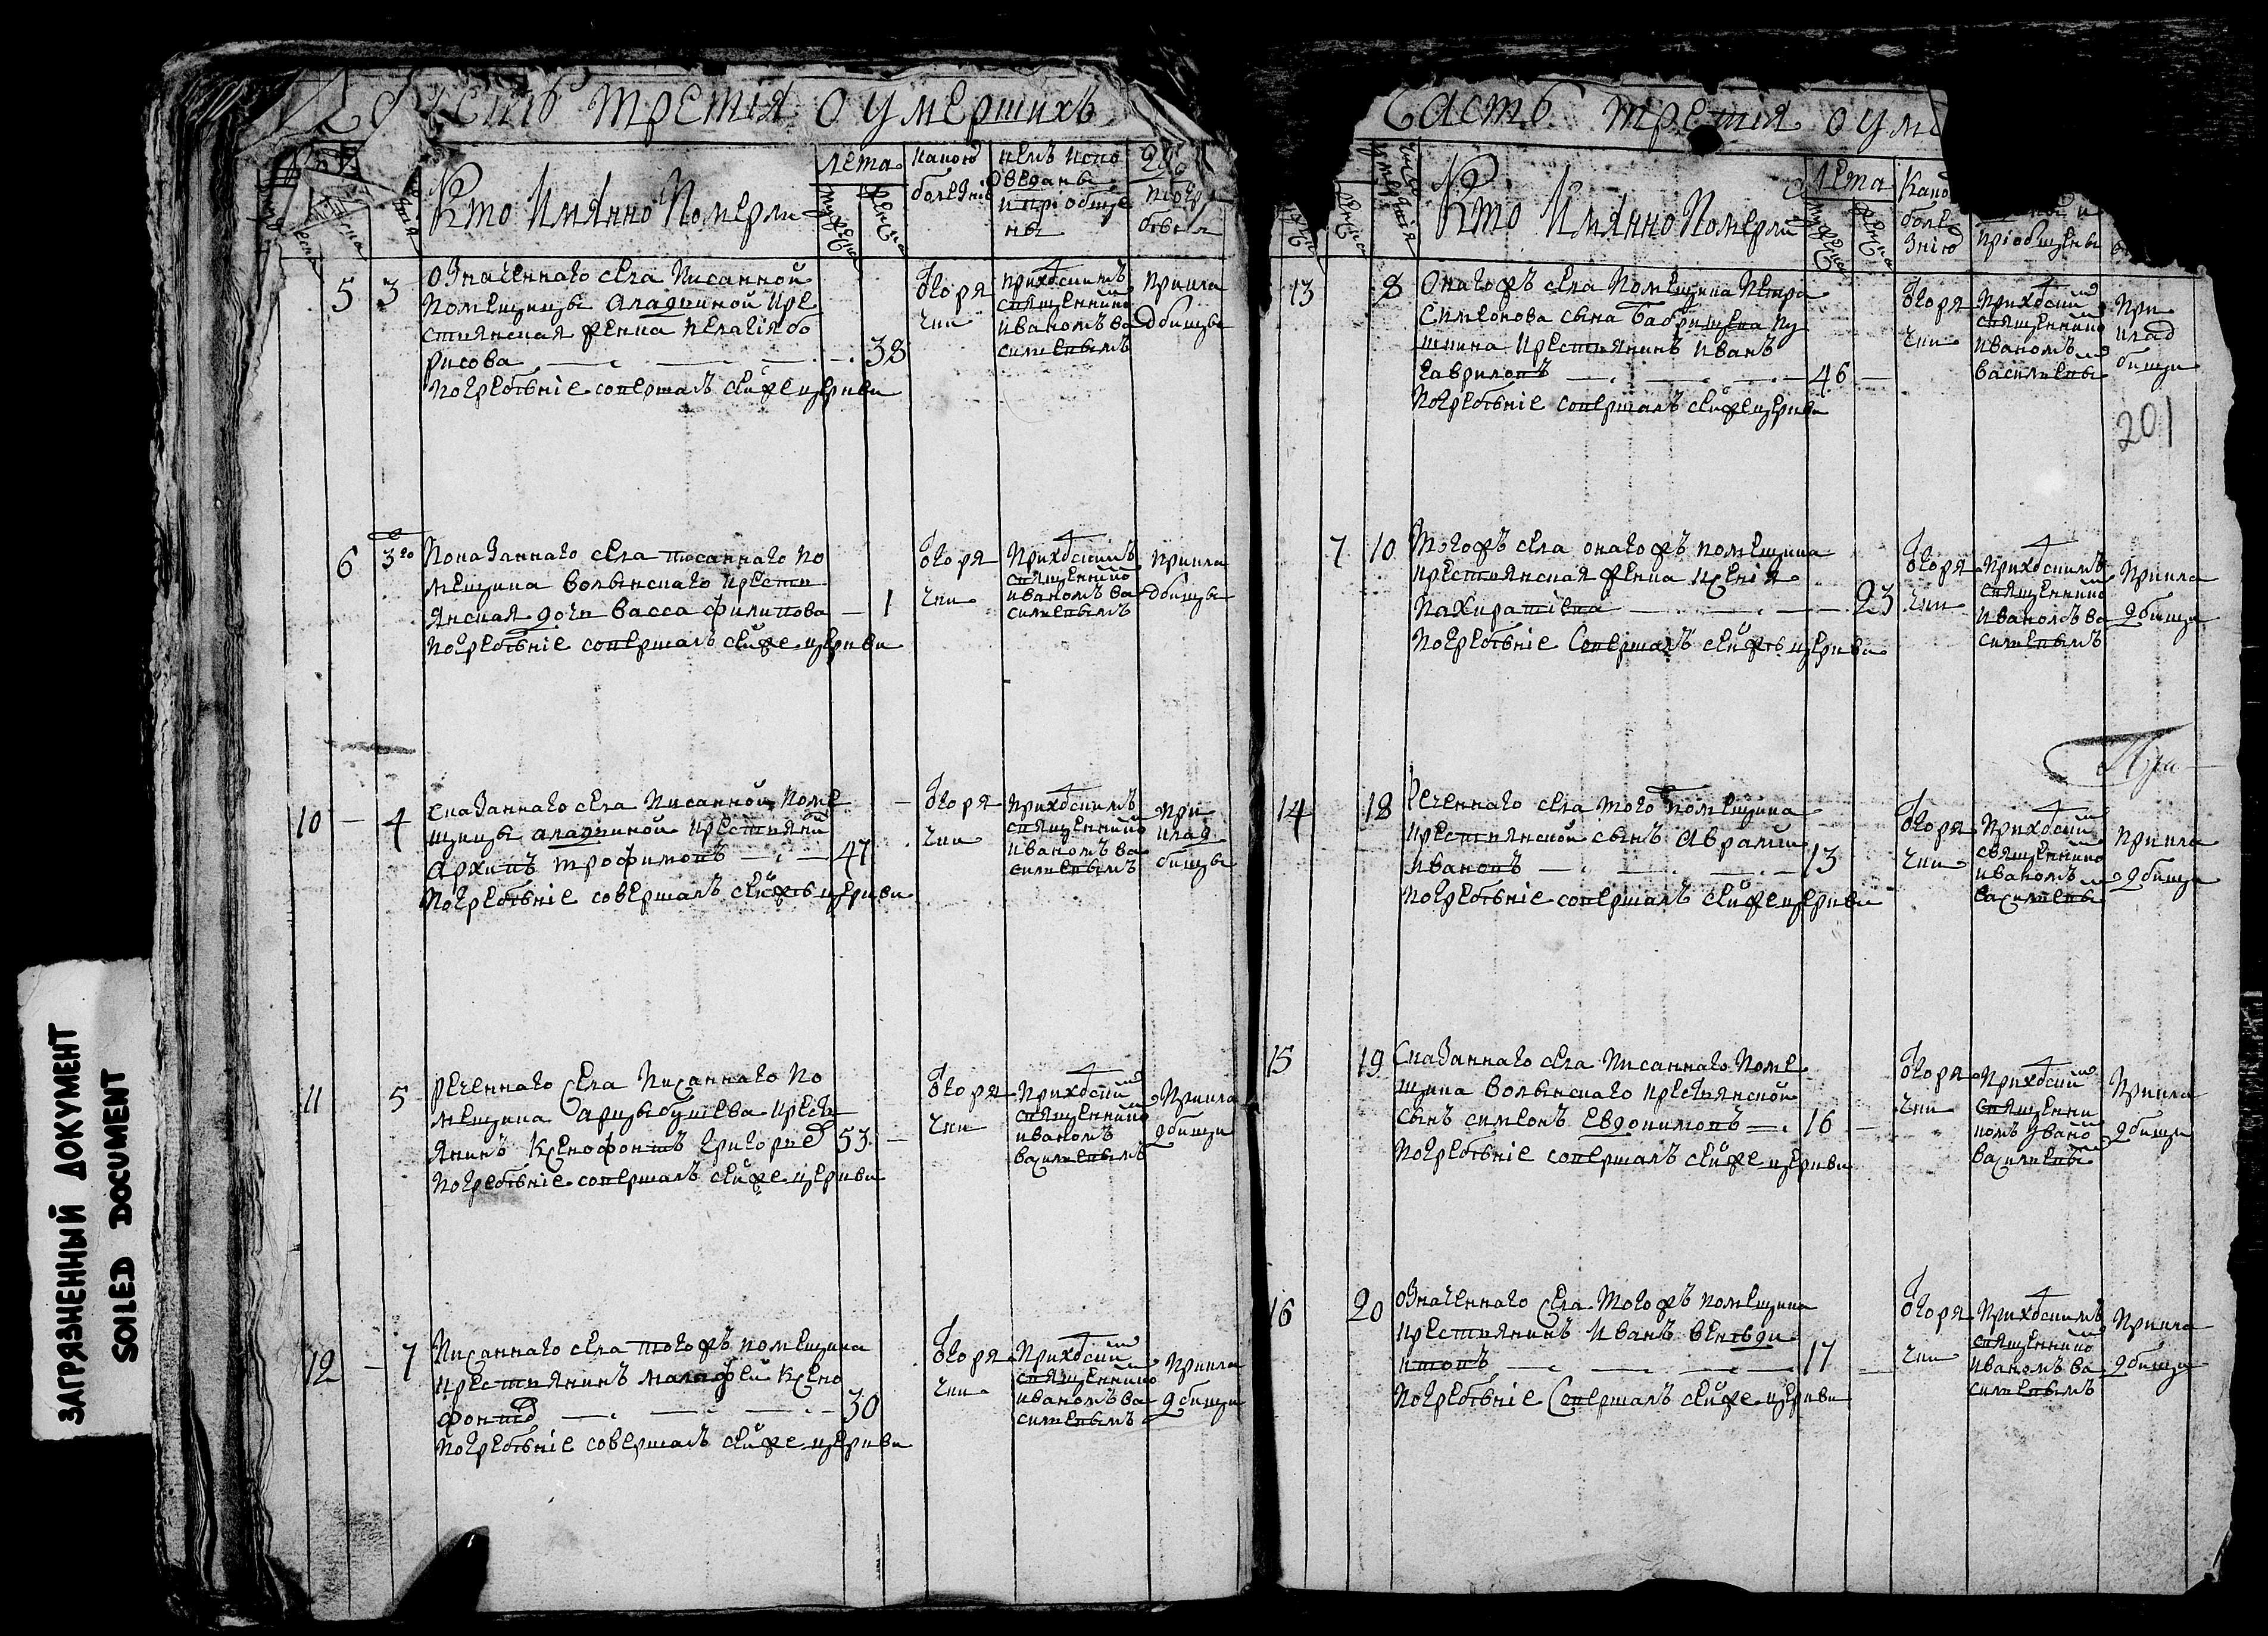 Часть третiя о умершихъ
Кто Имянно Померли
лета
какою
болезнiю
кемъ испо
веданы
и прiобще
ны
где
погре
бены
5 3 Означеннаго села писанной
помещицы Аладьиной кре
стьянская женка Пелагiя Бо
рисова 38
погребенiе совершалъ сей же церкви
горя
чки
приходскимъ
священнико
Иваномъ Ва
сильевымъ
прикла
дбище
6 3го Показаннаго села писаннаго по
мещика Волынскаго крестъ
янская дочь Васса Филипова 1
погребенiе совершалъ сей же церкви
горя
чки
приходскимъ
священнико
Иваномъ Ва
сильевымъ
прикла
дбище
10 4 Сказаннаго села писанной поме
щицы Аладьиной крестьяни
Архипъ Трофимовъ 47
погребенiе совершалъ сей же церкви
горя
чки
приходскимъ
священнико
Иваномъ Ва
сильевымъ
при
клад
бище
11 5 Реченнаго села писаннаго по
мещика Арцыбушева кресть
янинъ Ксенофонтъ Григорье 53
погребенiе совершалъ сей же церкви
горя
чки
приходски
священнико
Иваномъ
Васильевымъ
прикла
дбище
12 7 Писаннаго села тогожъ помещика
крестьянинъ Малафей Ксено
фонто 30
погребенiе совершалъ сей же церкви
горя
чки
приходски
священнико
Иваномъ Ва
сильевымъ
прикла
дбище
Часть третiя о уме
Кто Имянно Померли
лета
какою
боле
знiю
прiобщены
13 8 Оногожъ села помещика Петра
Симеонова сына Бабрищева Пу
шкина крестьянинъ Иванъ
Гавриловъ 46
погребенiе совершалъ сей же церкви
горя
чки
приходски
священнико
Иваномъ
Васильевы
при
клад
бище
201
7 10 Тогожъ села оногожъ помещика
крестьянская женка Ксенiя
Панкратiева 23
погребенiе совершалъ сей же церкви
горя
чки
приходскимъ
священнико
Иваномъ Ва
сильевымъ
прикла
дбище
14 18 Реченнаго села того помещика
крестьянской сынъ Аврамiй
Ивановъ 13
погребенiе совершалъ сей же церкви
горя
чки
приходски
священнико
Иваномъ
Васильевы
прикла
дбище
15 19 Сказаннаго села писаннаго поме
щика Волынскаго крестьянской
сынъ Симеонъ Евдокимовъ 16
погребенiе совершалъ сей же церкви
горя
чки
приходски
священни
комъ Ивано
Васильевы
прикла
дбище
16 20 Означеннаго села тогожъ помещика
крестьянинъ Иванъ Венеди
ктовъ 17
погребенiе совершалъ сей же церкви
горя
чки
приходскимъ
священнико
Иваномъ Ва
сильевымъ
прикла
дбище
ЗАГРЯЗНЕННЫЙ ДОКУМЕНТ
SOILED DOCUMENT